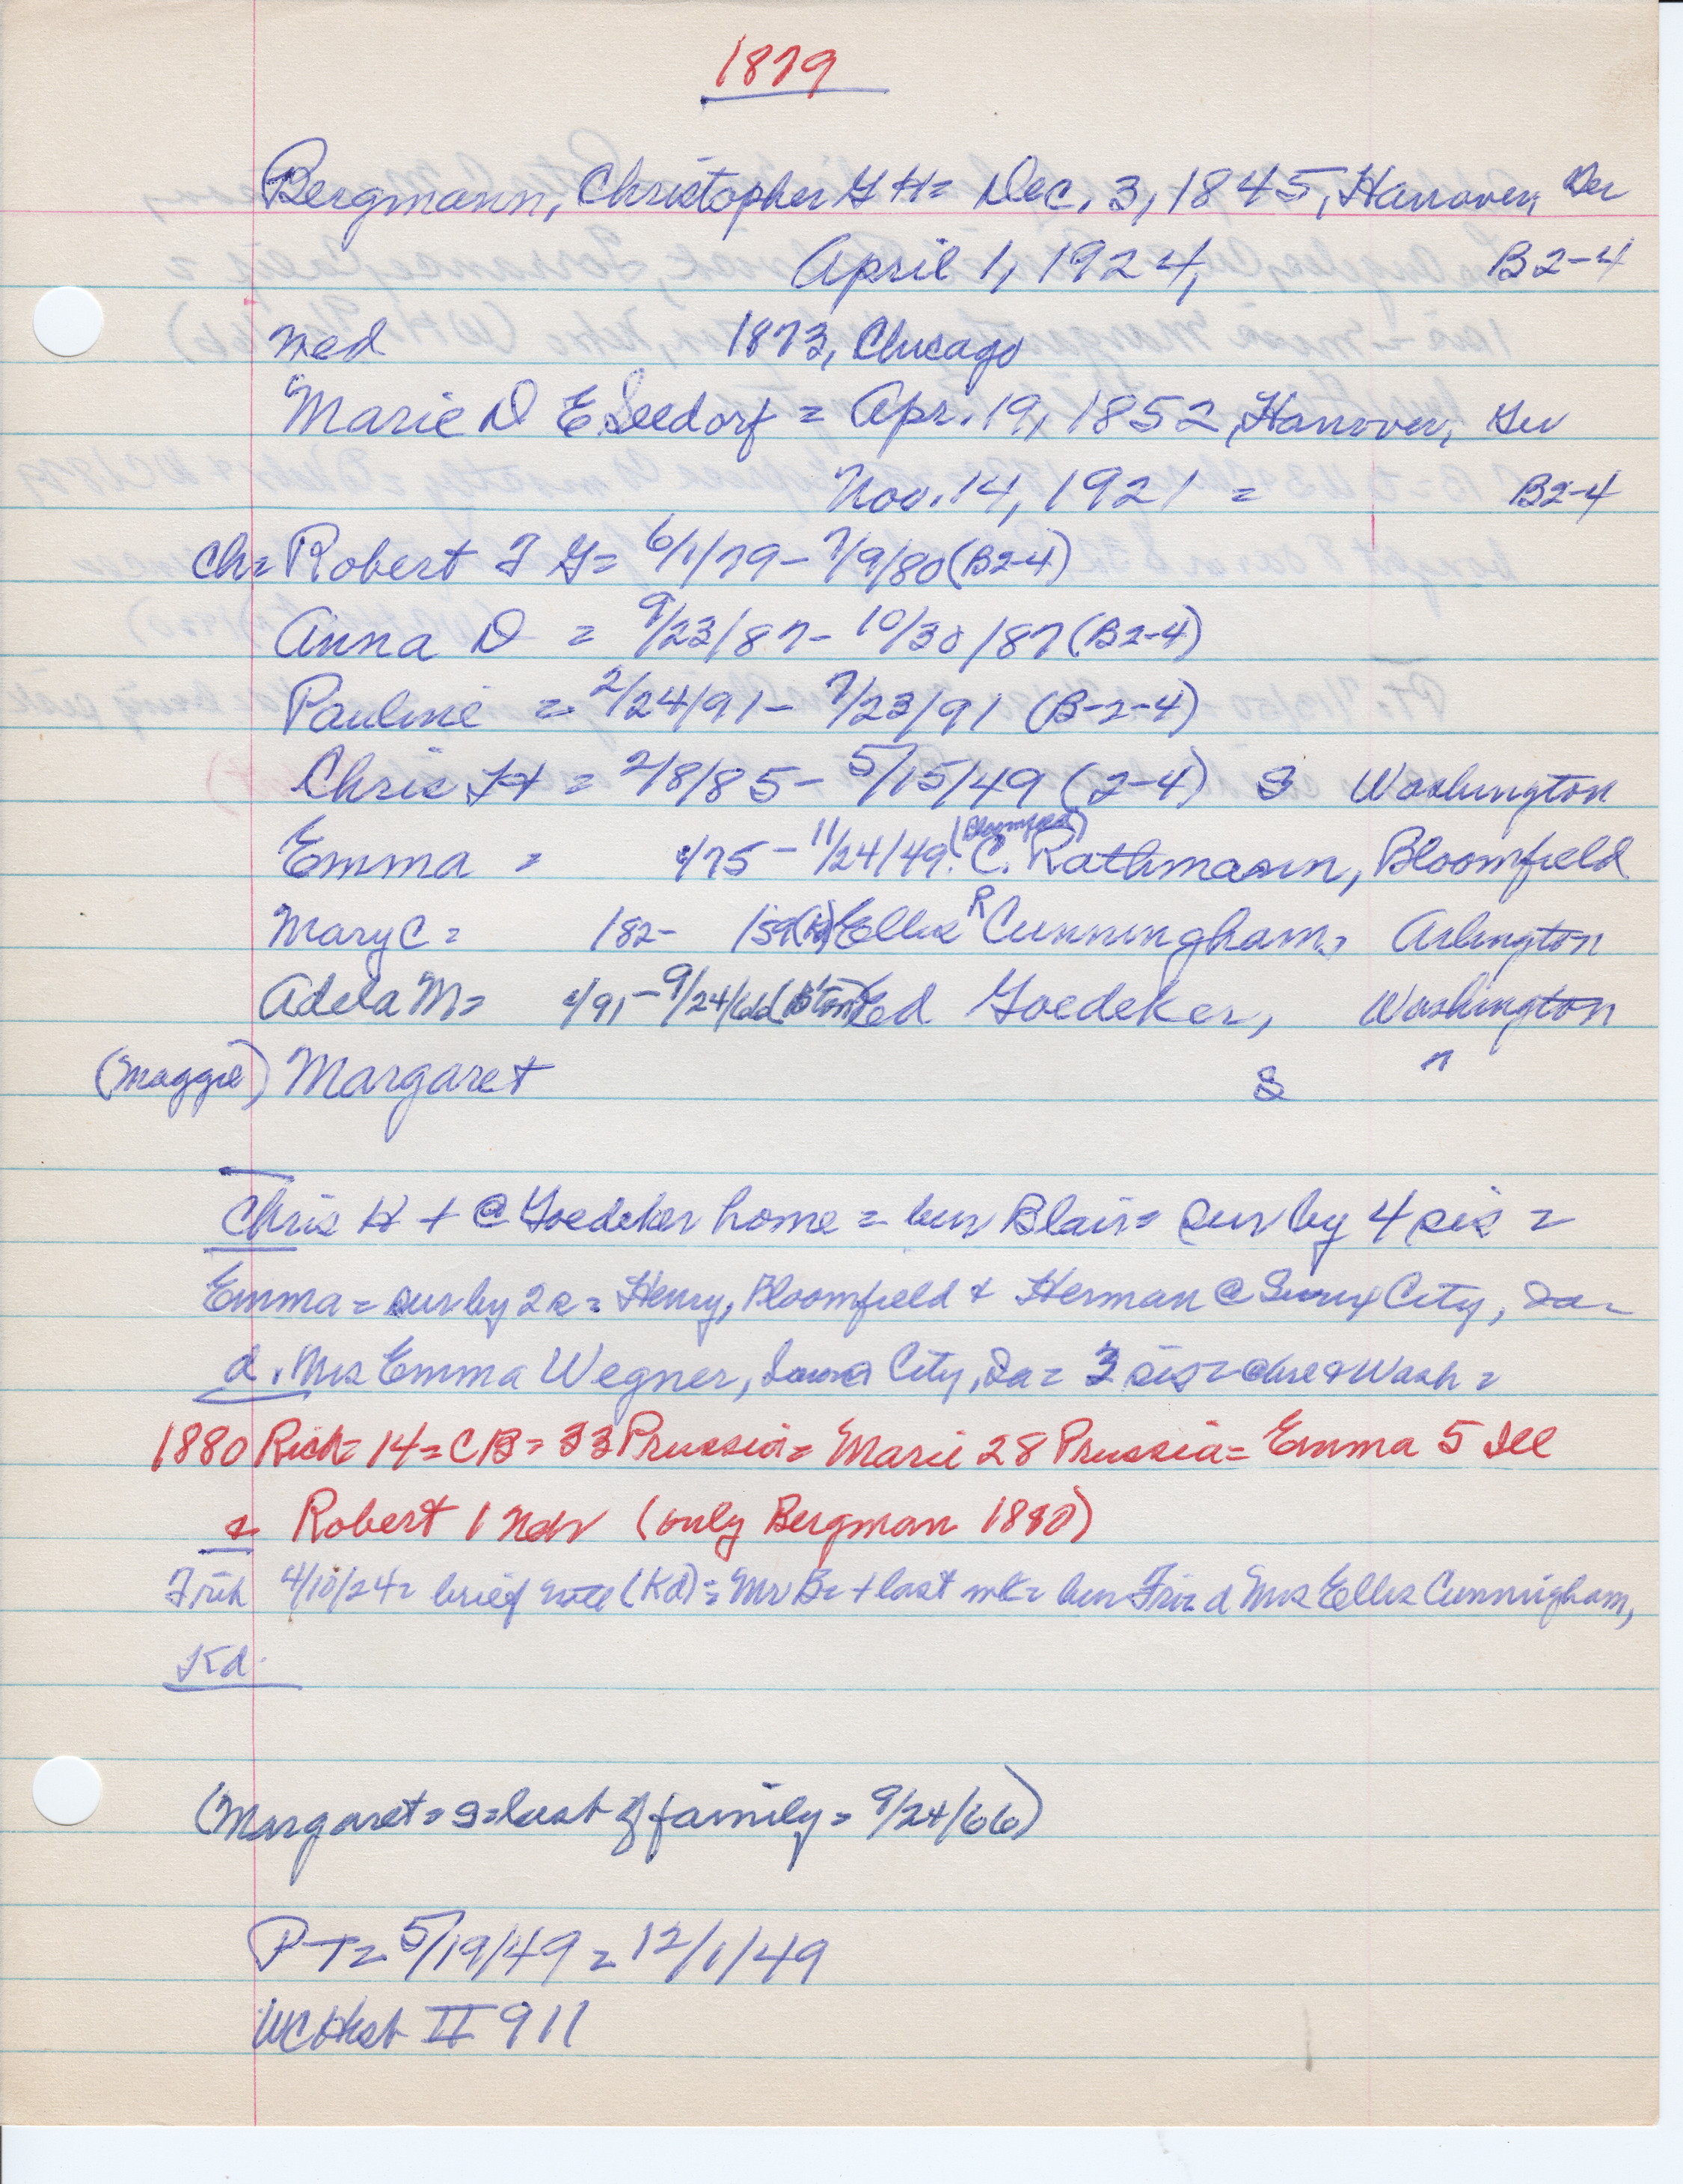 1879
Bergmann, Christopher G H = Dec. 3, 1845, Hanover, Ger
April 1, 1924, B2-4
med 1873, Chicago
Marie D E Seedorf = Apr. 19, 1852, Hanover, Ger
Nov. 14, 1921 = B2-4
Ch = Robert F G = 6/1/79 - 7/9/80 (B2-4)
Anna D = 9/23/87 - 10/30/87 (B2-4)
Pauline = 2/24/91 - 7/23/91 (B-2-4)
Chris H = 2/8/85 - 5/15/49 (2-4) S Washington
Emma = /75 - 11/24/49 (Bloomfield) C. Rathmann, Bloomfield
Mary C = /82 - /59 Ellis R Cunningham, Arlington
Adela M = /91 - 9/24/66 (B'ton) Ed Goedeker, Washington
(Maggie) Margaret S "
Chris H + @ Goedeker home = bur Blair = sur by 4 sis =
Emma = sur by 2 s = Henry, Bloomfield & Herman @ Sioux City, Ia =
d. Mrs Emma Wegner, Iowa City, Ia = 3 sis = & Wash =
1880 Rich = 14 = CB = 33 Prussia = Marie 28 Prussia = Emma 5 Ill
= Robert 1 Neb (only Bergman 1880)
4/10/24 = brief note (Kd) = Mr B = + last wk = bur Fri = d Mrs Ellis Cunningham,
Kd.
(Margaret = S = last of family = 9/24/66)
PT = 5/19/49 = 12/1/49
WC Hist II 911